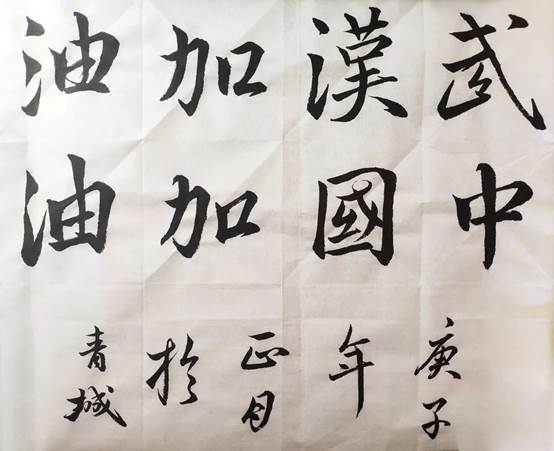 武漢加油
中國加油
庚子年正月於青城